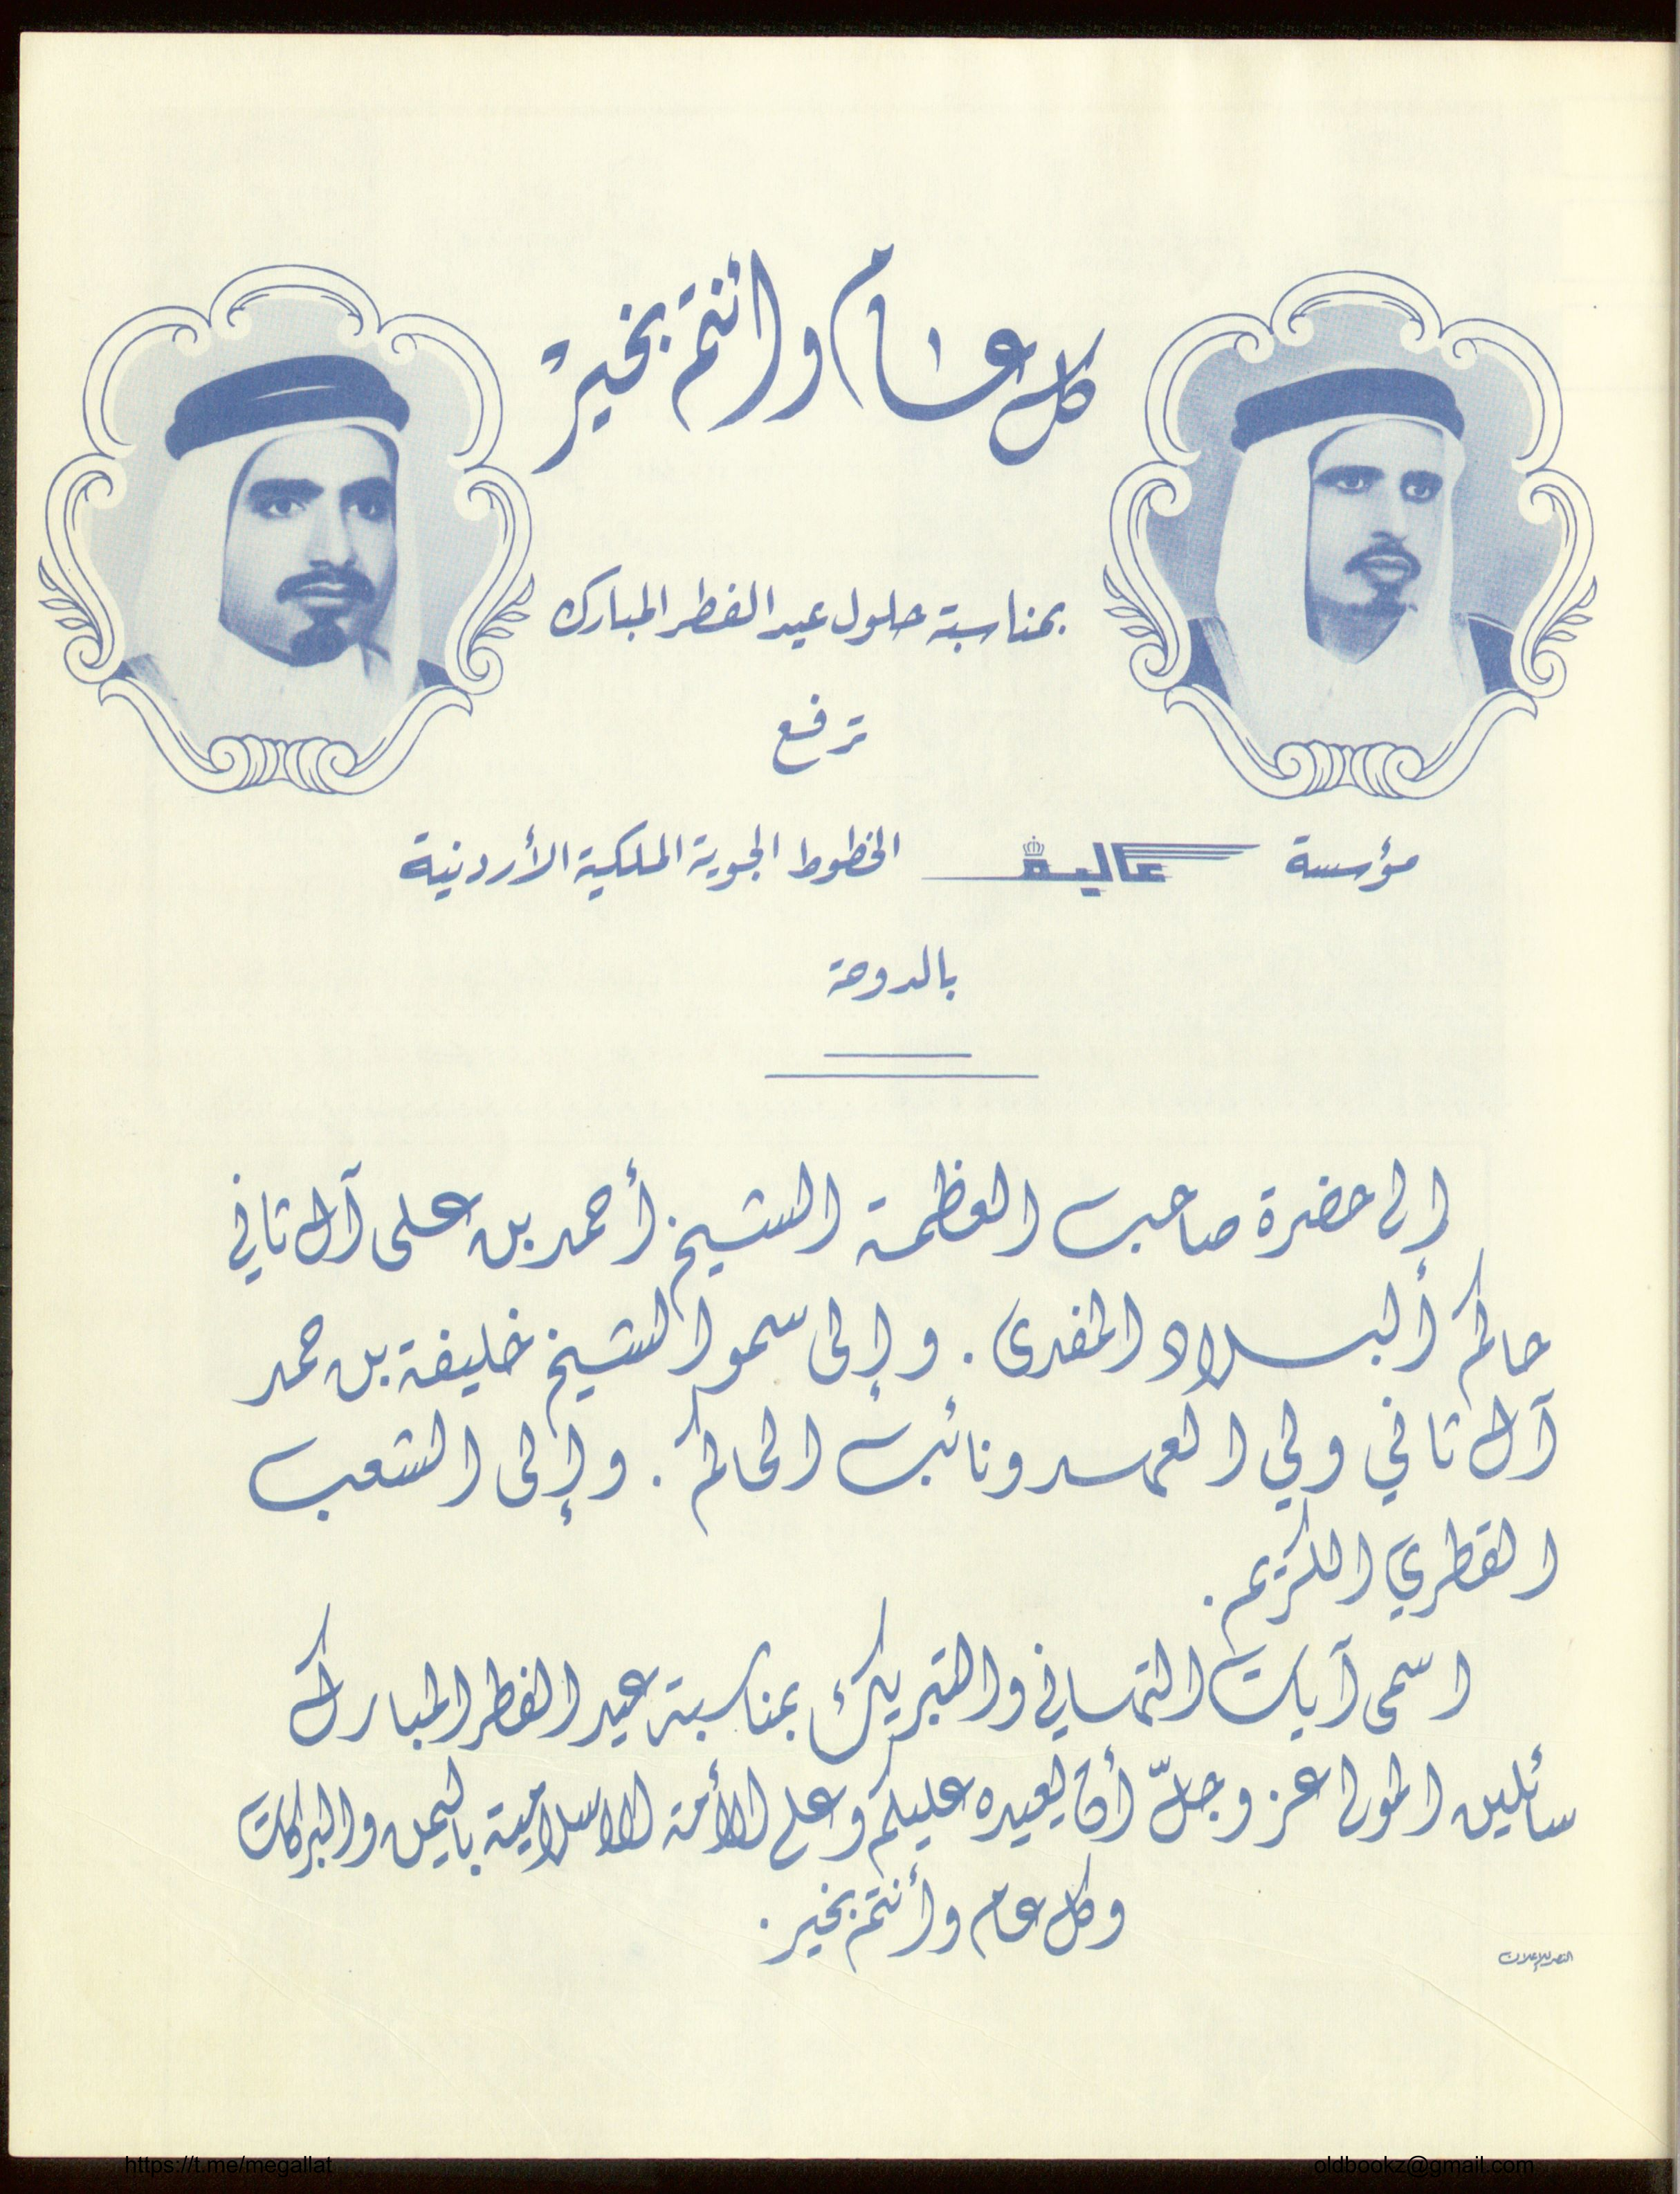 كل عام وأنتم بخير
بمناسبة حلول عيد الفطر المبارك
ترفع
مؤسسة عالية الخطوط الجوية الملكية الأردنية
بالدوحة
إلى حضرة صاحب العظمة الشيخ أحمد بن على آل ثاني
حاكم البلاد المفدى . وإلى سمو الشيخ خليفة بن حمد
آل ثاني ولي العهد ونائب الحاكم . وإلى الشعب
القطري الكريم .
اسمى آيات التهاني والتبريك بمناسبة عيد الفطر المبارك
سائلين المولى عز وجلّ أن يعيده عليكم وعلى الأمة الاسلامية باليمن والبركات
وكل عام وأنتم بخير .
النصر للإعلان
https://t.me/megallat
oldbookz@gmail.com